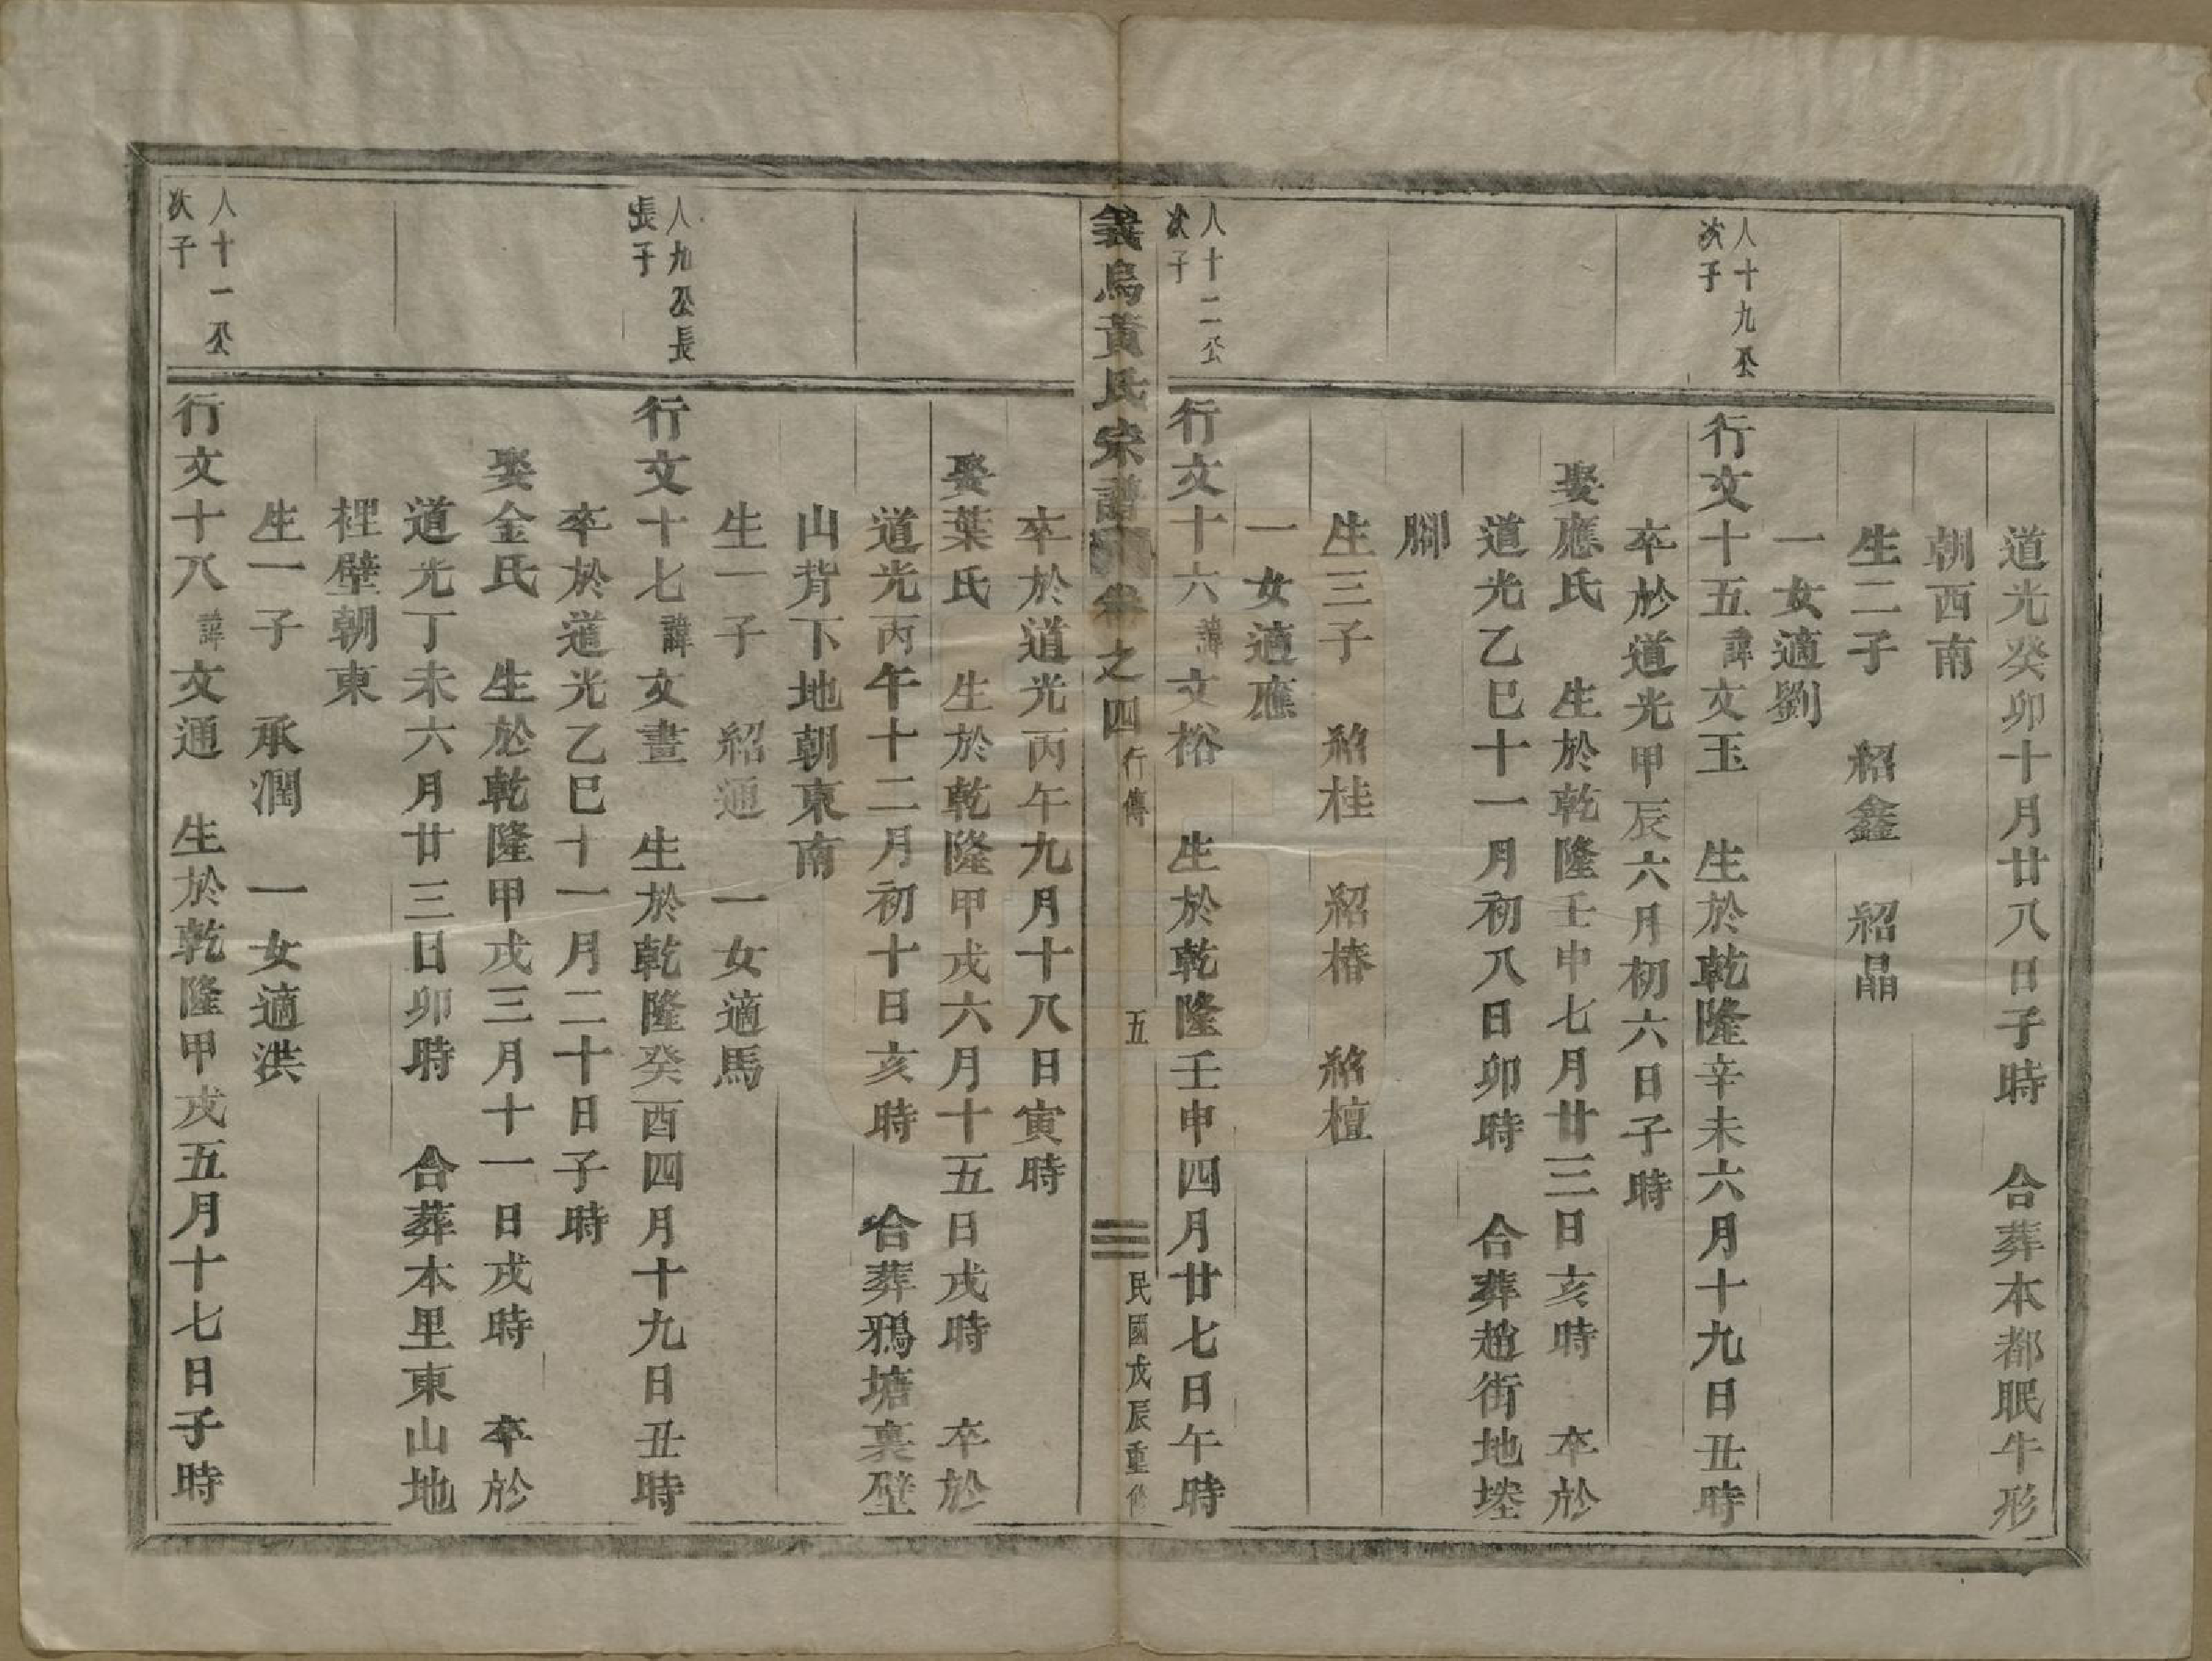 道光癸卯十月廿八日子時　合葬本都眠牛形
朝西南
生二子　紹鑫　紹晶
一女適劉
人十九公
次子
行文十五諱文玉　生於乾隆辛未六月十九日丑時
卒於道光甲辰六月初六日子時
娶應氏　生於乾隆壬申七月廿三日亥時　卒於
道光乙巳十一月初八日卯時　合葬趙街地塔
腳
生三子　紹桂　紹椿　紹檀
一女適應
人十二公
次子
行文十六諱文榕　生於乾隆壬申四月廿七日午時
義烏黃氏宗譜　卷之四　行傳　五　民國戊辰重修
卒於道光丙午九月十八日寅時
娶葉氏　生於乾隆甲戌六月十五日戌時　卒於
道光丙午十二月初十日亥時　合葬鴉塘裏壁
山背下地朝東南
生一子　紹通　一女適馬
人九公長
長子
行文十七諱文晝　生於乾隆癸酉四月十九日丑時
卒於道光乙巳十一月二十日子時
娶金氏　生於乾隆甲戌三月十一日戌時　卒於
道光丁未六月廿三日卯時　合葬本里東山地
裡壁朝東
生一子　承潤　一女適洪
人十一公
次子
行文十八諱文通　生於乾隆甲戌五月十七日子時